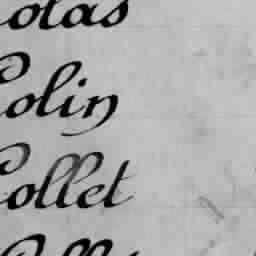 Colas
Colin
Collet